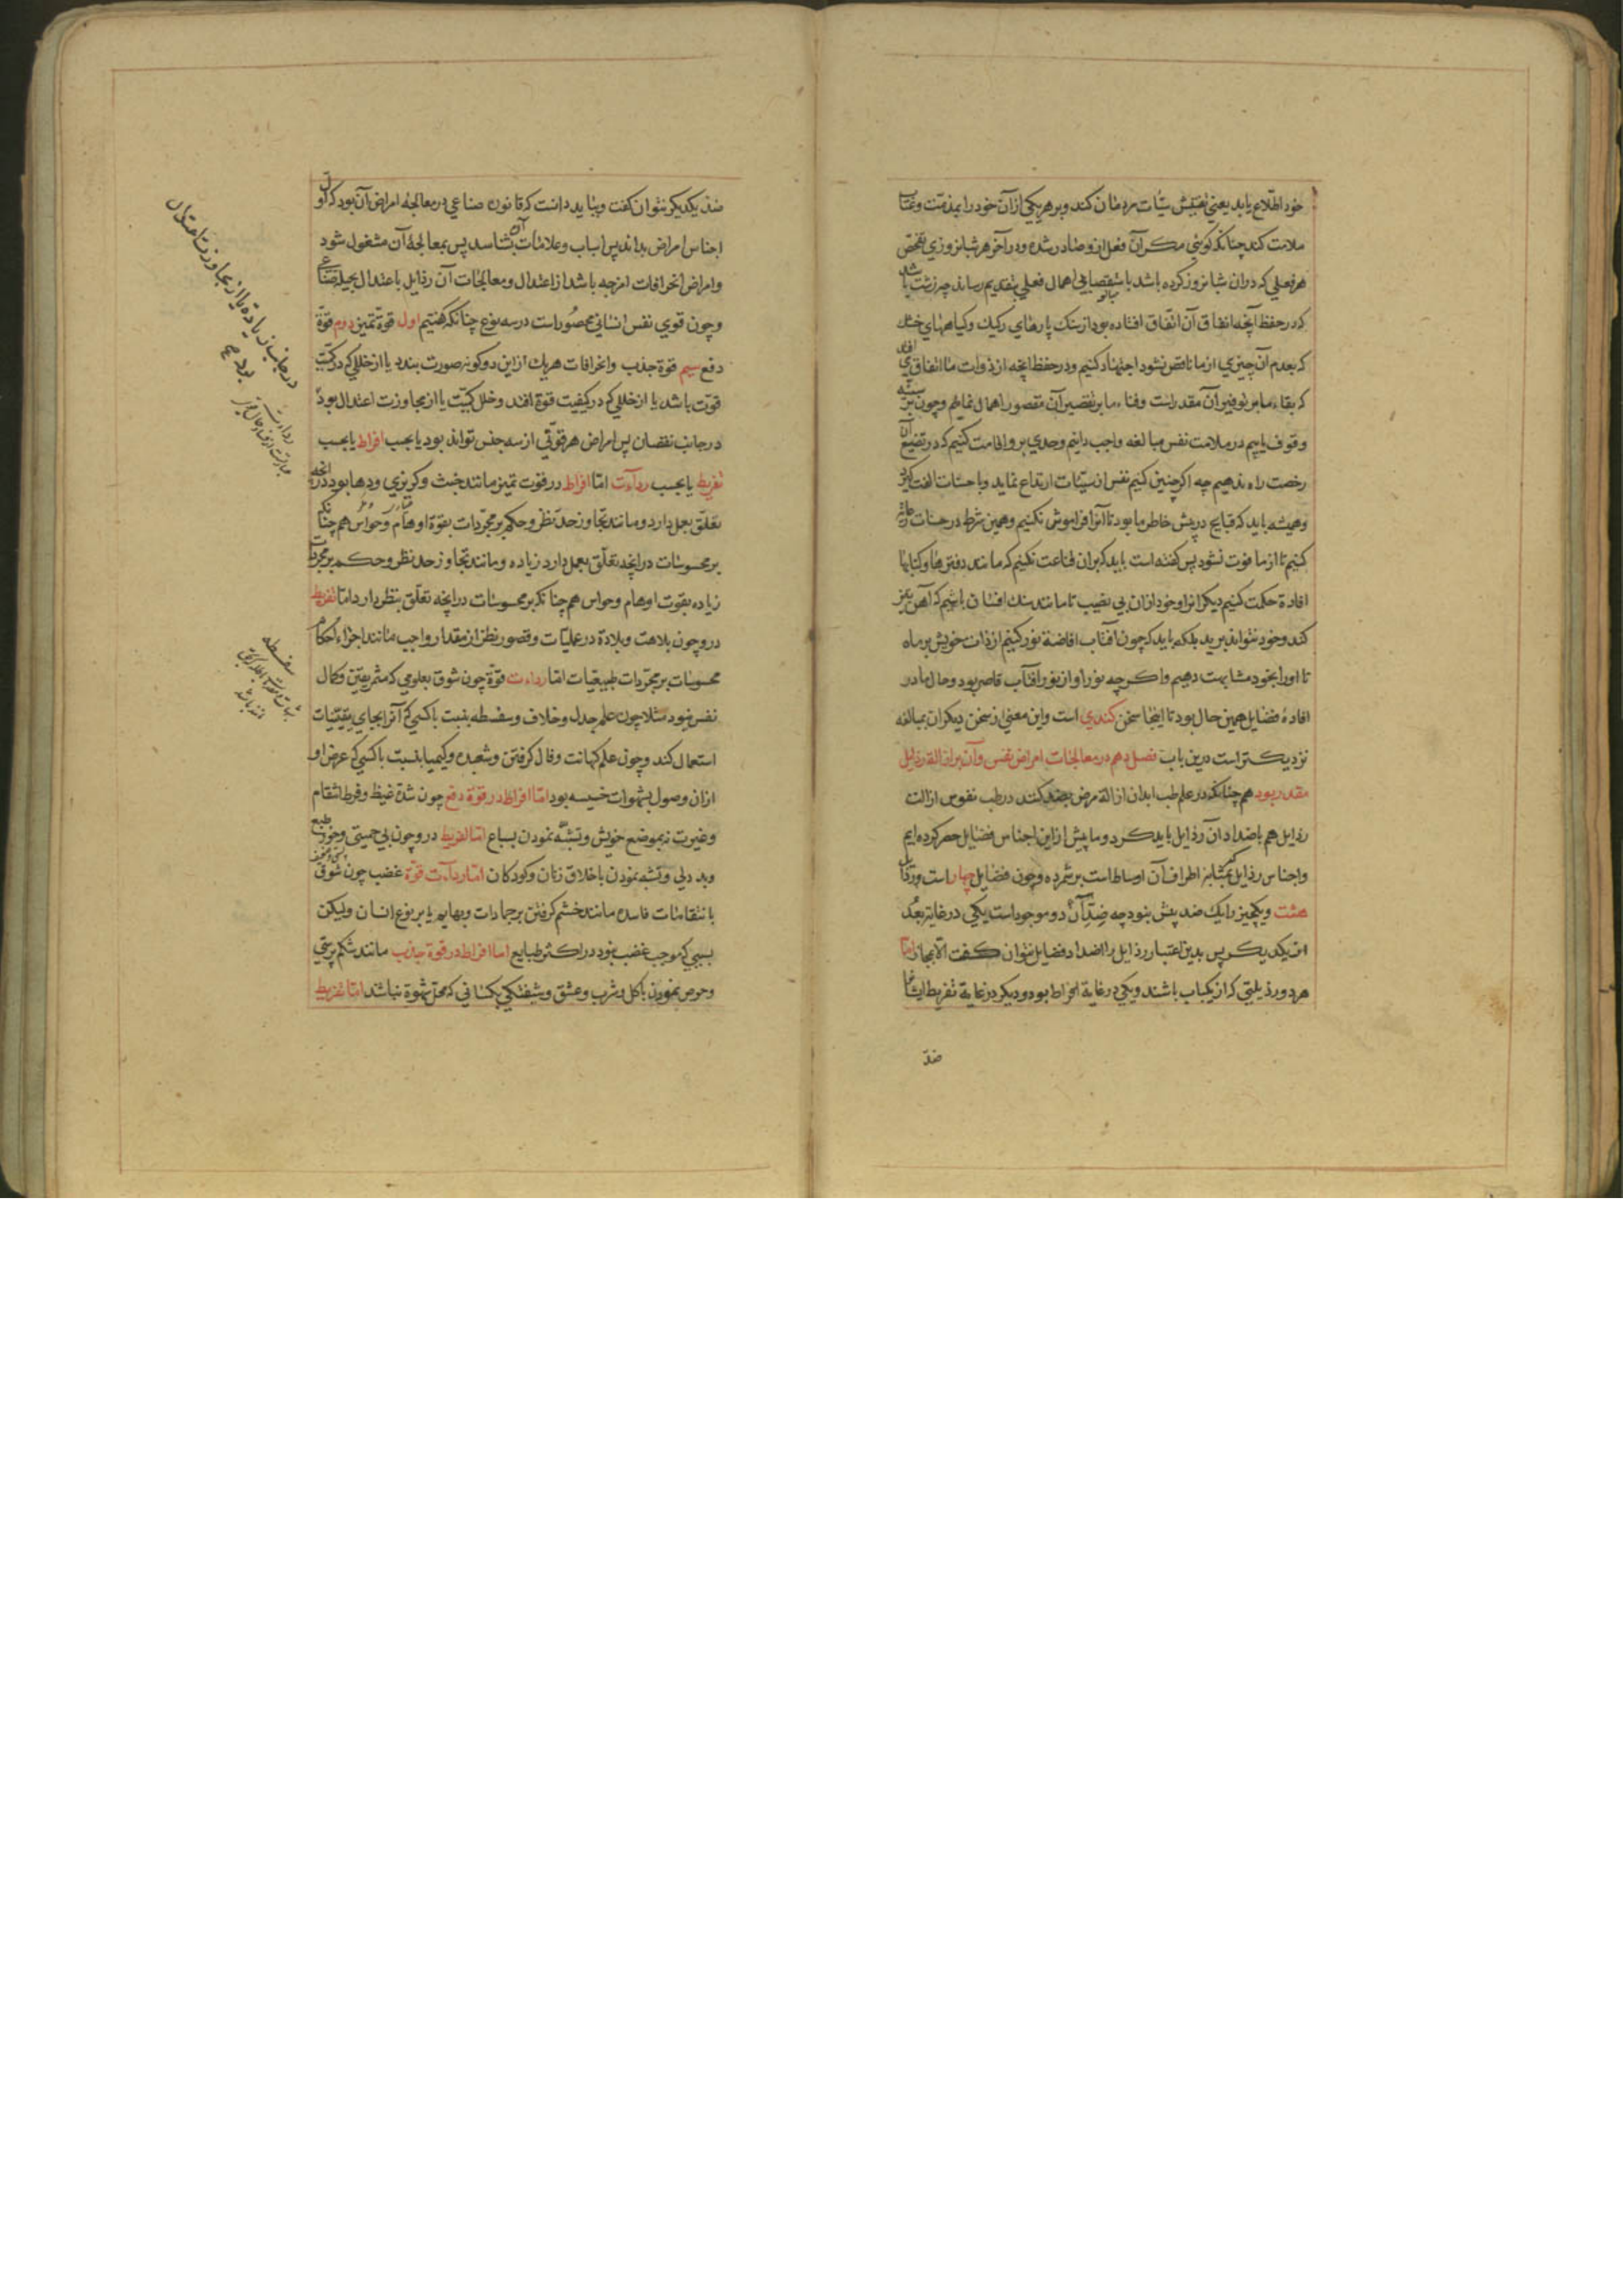 خود اطلاع یابد یعنی تفتیش سیّات مردمان کند و بر هر یکی از آن خود را بمذمّت و عتاب
ملامت کند چنانکه گوئی مکر آن فعل ازو صادر شده و در آخر هر شبانروزی تفحّص
هر فعلی که در آن شبانروز کرده باشد باستقصا بجای اهمال فعلی بتقدیم رساند چه زشت باشد
که در حفظ آنچه انفاق آن اتّفاق افتاده بود از سنک پارهای رکیك و کیاههای خشك
که بعدم آن چیزی از ما ناقص نشود اجتهاد کنیم و در حفظ آنچه از ذوات ما انفاق می افتد
که بقاء ما بر توفیر آن مقدر است و فناء ما بر تقصیر آن مقصور اهمال نماییم و چون بر سیئه
وقوف یابیم در ملامت نفس مبالغه واجب دانیم و حدی برو اقامت کنیم که در تضییع آن
رخصت راه ندهیم چه اکر چنین کنیم نفس از سیّئات ارتداع نماید و با حسنات الفت کیرد
و همیشه باید که قبایح در پیش خاطر ما بود تا آنرا فراموش نکنیم و همین شرط در حسنات رعایت
کنیم تا از ما فوت نشود پس کفته است باید که بر ان قناعت نکنیم که مانند دفترها و کتابها
افادة حکمت کنیم دیکرانرا و خود از ان بی نصیب تا مانند سنك افسان باشیم که آهن تیز
کند و خود نتواند برید بلکه باید که چون آفتاب افاضهٔ نور کنیم از ذات خویش بر ماه
تا او را بخود مشابهت دهیم و اکرچه نور او از نور آفتاب قاصر بود و حال ما در
افادهٔ فضایل همین حال بود تا اینجا سخن کندی است و این معنی از سخن دیکران بمبالغه
نزدیکتر است درین باب فصل دهم در معالجات امراض نفس و آن بر ازالة رذایل
مقدر بود همچنانکه در علم طب ابدان ازالة مرض بضد کنند در طب نفوس ازالت
رذایل هم باضداد آن رذایل باید کرد و ما پیش از این اجناس فضایل حصر کرده ایم
و اجناس رذایل که بمثابهٔ اطراف آن اوساط است بر شمرده و چون فضایل چهار است و رذایل
هشت و یکچیز را یك ضد بیش نبود چه ضِدّانِ دو موجود است یکی در غایة بُعْد
از یکدیکر پس بدین اعتبار رذایل را اضداد فضایل نتوان کفت الّا بمجاز امّا
هر دو رذیلتی که از یکباب باشند و یکی در غایة افراط بود و دیکر در غایة تفریط ایشانرا
ضدّ
ضدّ یکدیکر بتوان کفت و بباید دانست که قانون صناعی در معالجهٔ امراض آن بود که اوّل
اجناس امراض بداند پس اسباب و علامات آن بشناسد پس بمعالجهٔ آن مشغول شود
و امراض انحرافات امزجه باشد از اعتدال و معالجات آن رذایل باعتدال بحیلهٔ صناعی
و چون قوی نفس انسانی محصُور است در سه نوع چنانکه کفتیم اول قوة تمیز دوم قوّة
دفع سیم قوة جذب و انحرافات هریك از این دو کونه صورت بندد یا از خللی که در کمیّت
قوّت باشد یا از خللی که در کیفیت قوّة افتد و خلل کمیّت یا از مجاوزت اعتدال بود
در جانب نقصان پس امراض هر قوّتی از سه جنس تواند بود یا بحسب افراط یا بحسب
تفریط یا بحسب رداءت امّا افراط در قوت تمیز مانند خبث و کربزی و دها بود در آنچه
تعلّق بعمل دارد و مانند تجاوز حدّ نظر و حکم بر مجرّدات بقوة اوهام و حواس همچنانکه
بر محسوسات در انچه تعلّق بعمل دارد زیاده و مانند تجاوز حد نظر و حکم بر مجرّدات
زیاده بقوت اوهام و حواس همچنانکه بر محسوسات در انچه تعلّق بنظر دارد امّا تفریط
درو چون بلاهت و بلادة در عملیّات و قصور نظر از مقدار واجب مانند اجراء احکام
محسوسات بر مجرّدات طبیعیّات امّا رداءت قوّة چون شوق بعلومی که مثمر یقین و کمال
نفس نبود مثلا چون علم جدل و خلاف و سفسطه بنسبت با کسی که آنرا بجای یقینیّات
استعمال کند و چون علم کهانت و فال کرفتن و شعبده و کیمیا بنسبت با کسی که غرض او
ازان وصول بشهوات خسیسه بود امّا افراط در قوّة دفع چون شدّة غیظ و فرط انتقام
و غیرت نه بموضع خویش و تشبّه نمودن بسباع امّا تفریط درو چون بی حمیتی و خور طبع
و بد دلی و تشبه نمودن باخلاق زنان و کودکان امّا رداءت قوّة غضب چون شوق
بانتقامات فاسده مانند خشم کرفتن بر جمادات و بهایم یا بر نوع انسان ولیکن
بسببی که موجب غضب نبود در اکثر طبایع اما افراط در قوة جذب مانند شکم پرستی
و حرص نمودن باکل و شرب و عشق و شیفتکی بکسانی که محلّ شهوة نباشند امّا تفریط
در جانب زیاده یا از مجاوزت اعتدال
بود
رداءت
سفسطه